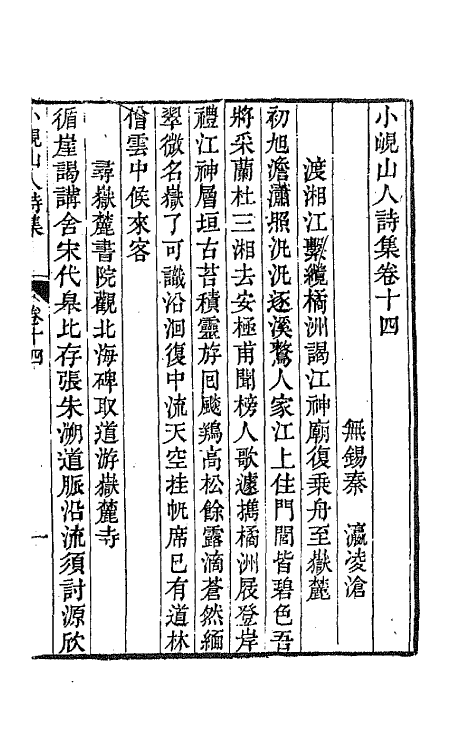 小峴山人詩集卷十四
無錫秦　瀛凌滄
渡湘江繫纜橘洲謁江神廟復乘舟至嶽麓
初旭澹瀟照汎汎逐溪鶩人家江上住門閭皆碧色吾
將采蘭杜三湘去安極甫聞榜人歌遽擕橘洲屐登岸
禮江神層垣古苔積靈斿囘颷鶏高松餘露滴蒼然緬
翠微名嶽了可識沿洄復中流天空挂帆席巳有道林
僧雲中候來客
尋嶽麓書院觀北海碑取道游嶽麓寺
循崖謁講舍宋代皋比存張朱溯道脈沿流須討源欣
小峴山人詩集
卷十四
一